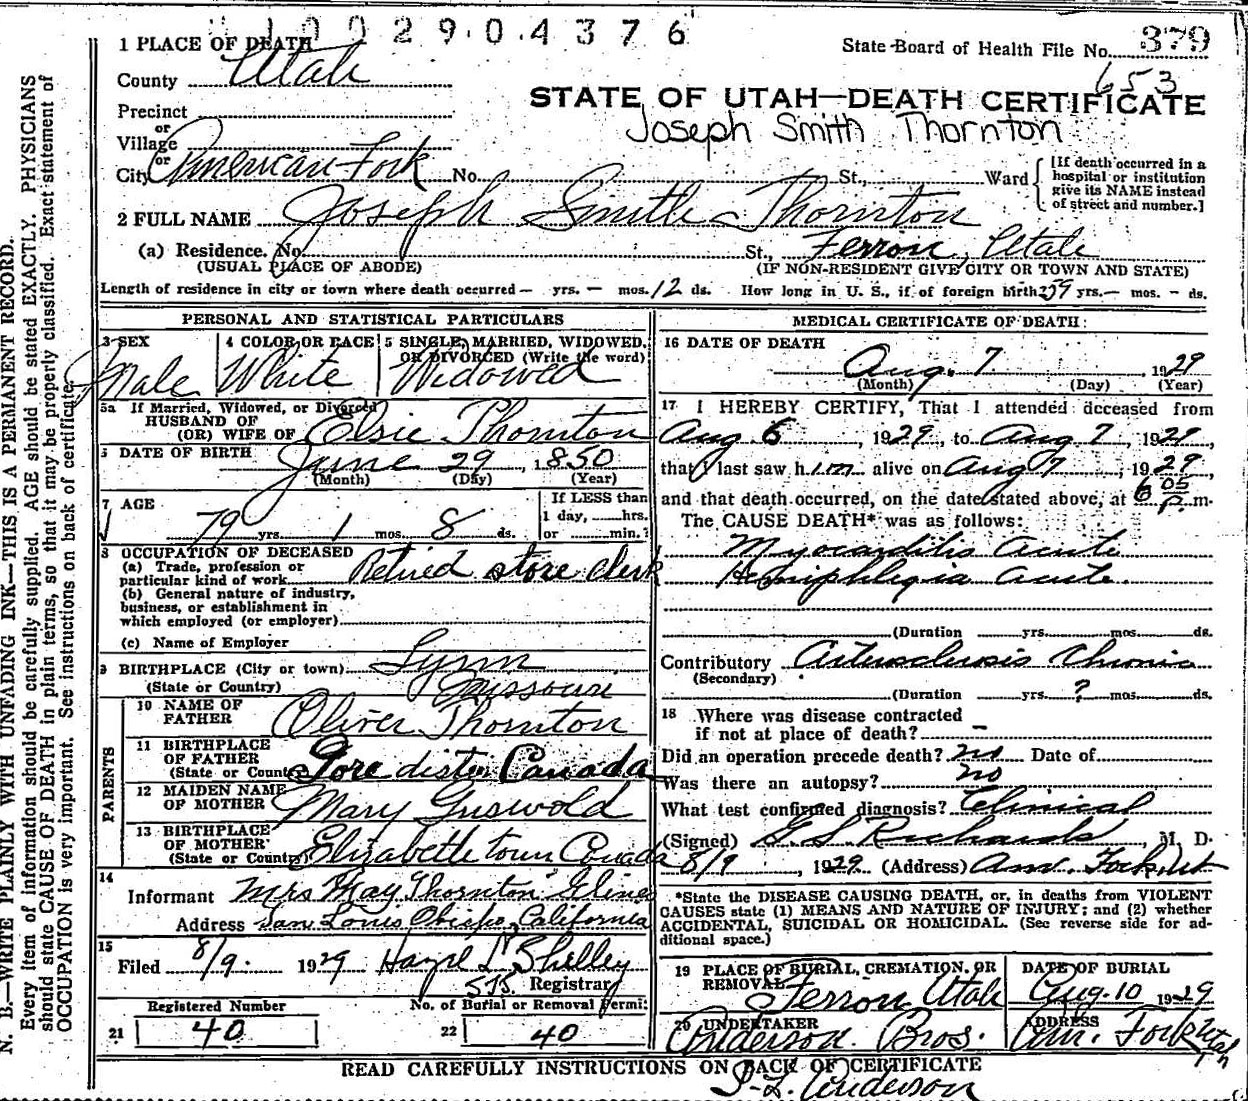 1002904376
1 PLACE OF DEATH
State Board of Health File No. 379
County Utah
653
STATE OF UTAH—DEATH CERTIFICATE
Precinct
or
Village
Joseph Smith Thornton
or
City American Fork No. St., Ward
[If death occurred in a hospital or institution give its NAME instead of street and number.]
2 FULL NAME Joseph Smith Thornton
(a) Residence. No. St., Ferron, Utah
(USUAL PLACE OF ABODE) (IF NON-RESIDENT GIVE CITY OR TOWN AND STATE)
Length of residence in city or town where death occurred — yrs. — mos. 12 ds. How long in U. S., if of foreign birth? 59 yrs. — mos. - ds.
PERSONAL AND STATISTICAL PARTICULARS
3 SEX Male
4 COLOR OR RACE White
5 SINGLE, MARRIED, WIDOWED, OR DIVORCED (Write the word) Widowed
5a If Married, Widowed, or Divorced
HUSBAND OF
(OR) WIFE OF Elsie Thornton
6 DATE OF BIRTH June 29, 1850
(Month) (Day) (Year)
7 AGE
79 yrs. 1 mos. 8 ds.
If LESS than
1 day, hrs.
or min.?
8 OCCUPATION OF DECEASED
(a) Trade, profession or
particular kind of work Retired store clerk
(b) General nature of industry,
business, or establishment in
which employed (or employer)
(c) Name of Employer
9 BIRTHPLACE (City or town) Lynn
(State or Country) Missouri
PARENTS
10 NAME OF
FATHER Oliver Thornton
11 BIRTHPLACE
OF FATHER
(State or Country) Gore dister Canada
12 MAIDEN NAME
OF MOTHER Mary Griswold
13 BIRTHPLACE
OF MOTHER
(State or Country) Elizabethtown Canada
14
Informant Mrs May Thornton Glines
Address San Louis Obispo, California
15
Filed 8/9. 1929 Hazel L Shelley
Registrar
Registered Number
21 40
No. of Burial or Removal Permit
22 40
MEDICAL CERTIFICATE OF DEATH
16 DATE OF DEATH
Aug. 7, 1929
(Month) (Day) (Year)
17 I HEREBY CERTIFY, That I attended deceased from
Aug 6, 1929, to Aug 7, 1929,
that I last saw him alive on Aug 7, 1929
and that death occurred, on the date stated above, at 6 05 P. m.
The CAUSE DEATH* was as follows:
Myocarditis acute
Hemiphlegia acute.
(Duration yrs. mos. ds.
Contributory Arterosclerosis Chronic
(Secondary)
(Duration yrs. ? mos. ds.
18 Where was disease contracted
if not at place of death? —
Did an operation precede death? no Date of
Was there an autopsy? no
What test confirmed diagnosis? Clinical
(Signed) G. S. Richards, M. D.
8/9, 1929 (Address) Am. Fork, Ut
*State the DISEASE CAUSING DEATH, or, in deaths from VIOLENT
CAUSES state (1) MEANS AND NATURE OF INJURY; and (2) whether
ACCIDENTAL, SUICIDAL OR HOMICIDAL. (See reverse side for ad-
ditional space.)
19 PLACE OF BURIAL, CREMATION, OR
REMOVAL Ferron Utah
DATE OF BURIAL
Aug. 10 1929
20 UNDERTAKER
Anderson Bros.
ADDRESS
Am. Fork, Utah
READ CAREFULLY INSTRUCTIONS ON BACK OF CERTIFICATE
Anderson
N. B.—WRITE PLAINLY WITH UNFADING INK—THIS IS A PERMANENT RECORD.
Every item of information should be carefully supplied. AGE should be stated EXACTLY. PHYSICIANS
should state CAUSE OF DEATH in plain terms, so that it may be properly classified. Exact statement of
OCCUPATION is very important. See instructions on back of certificate.